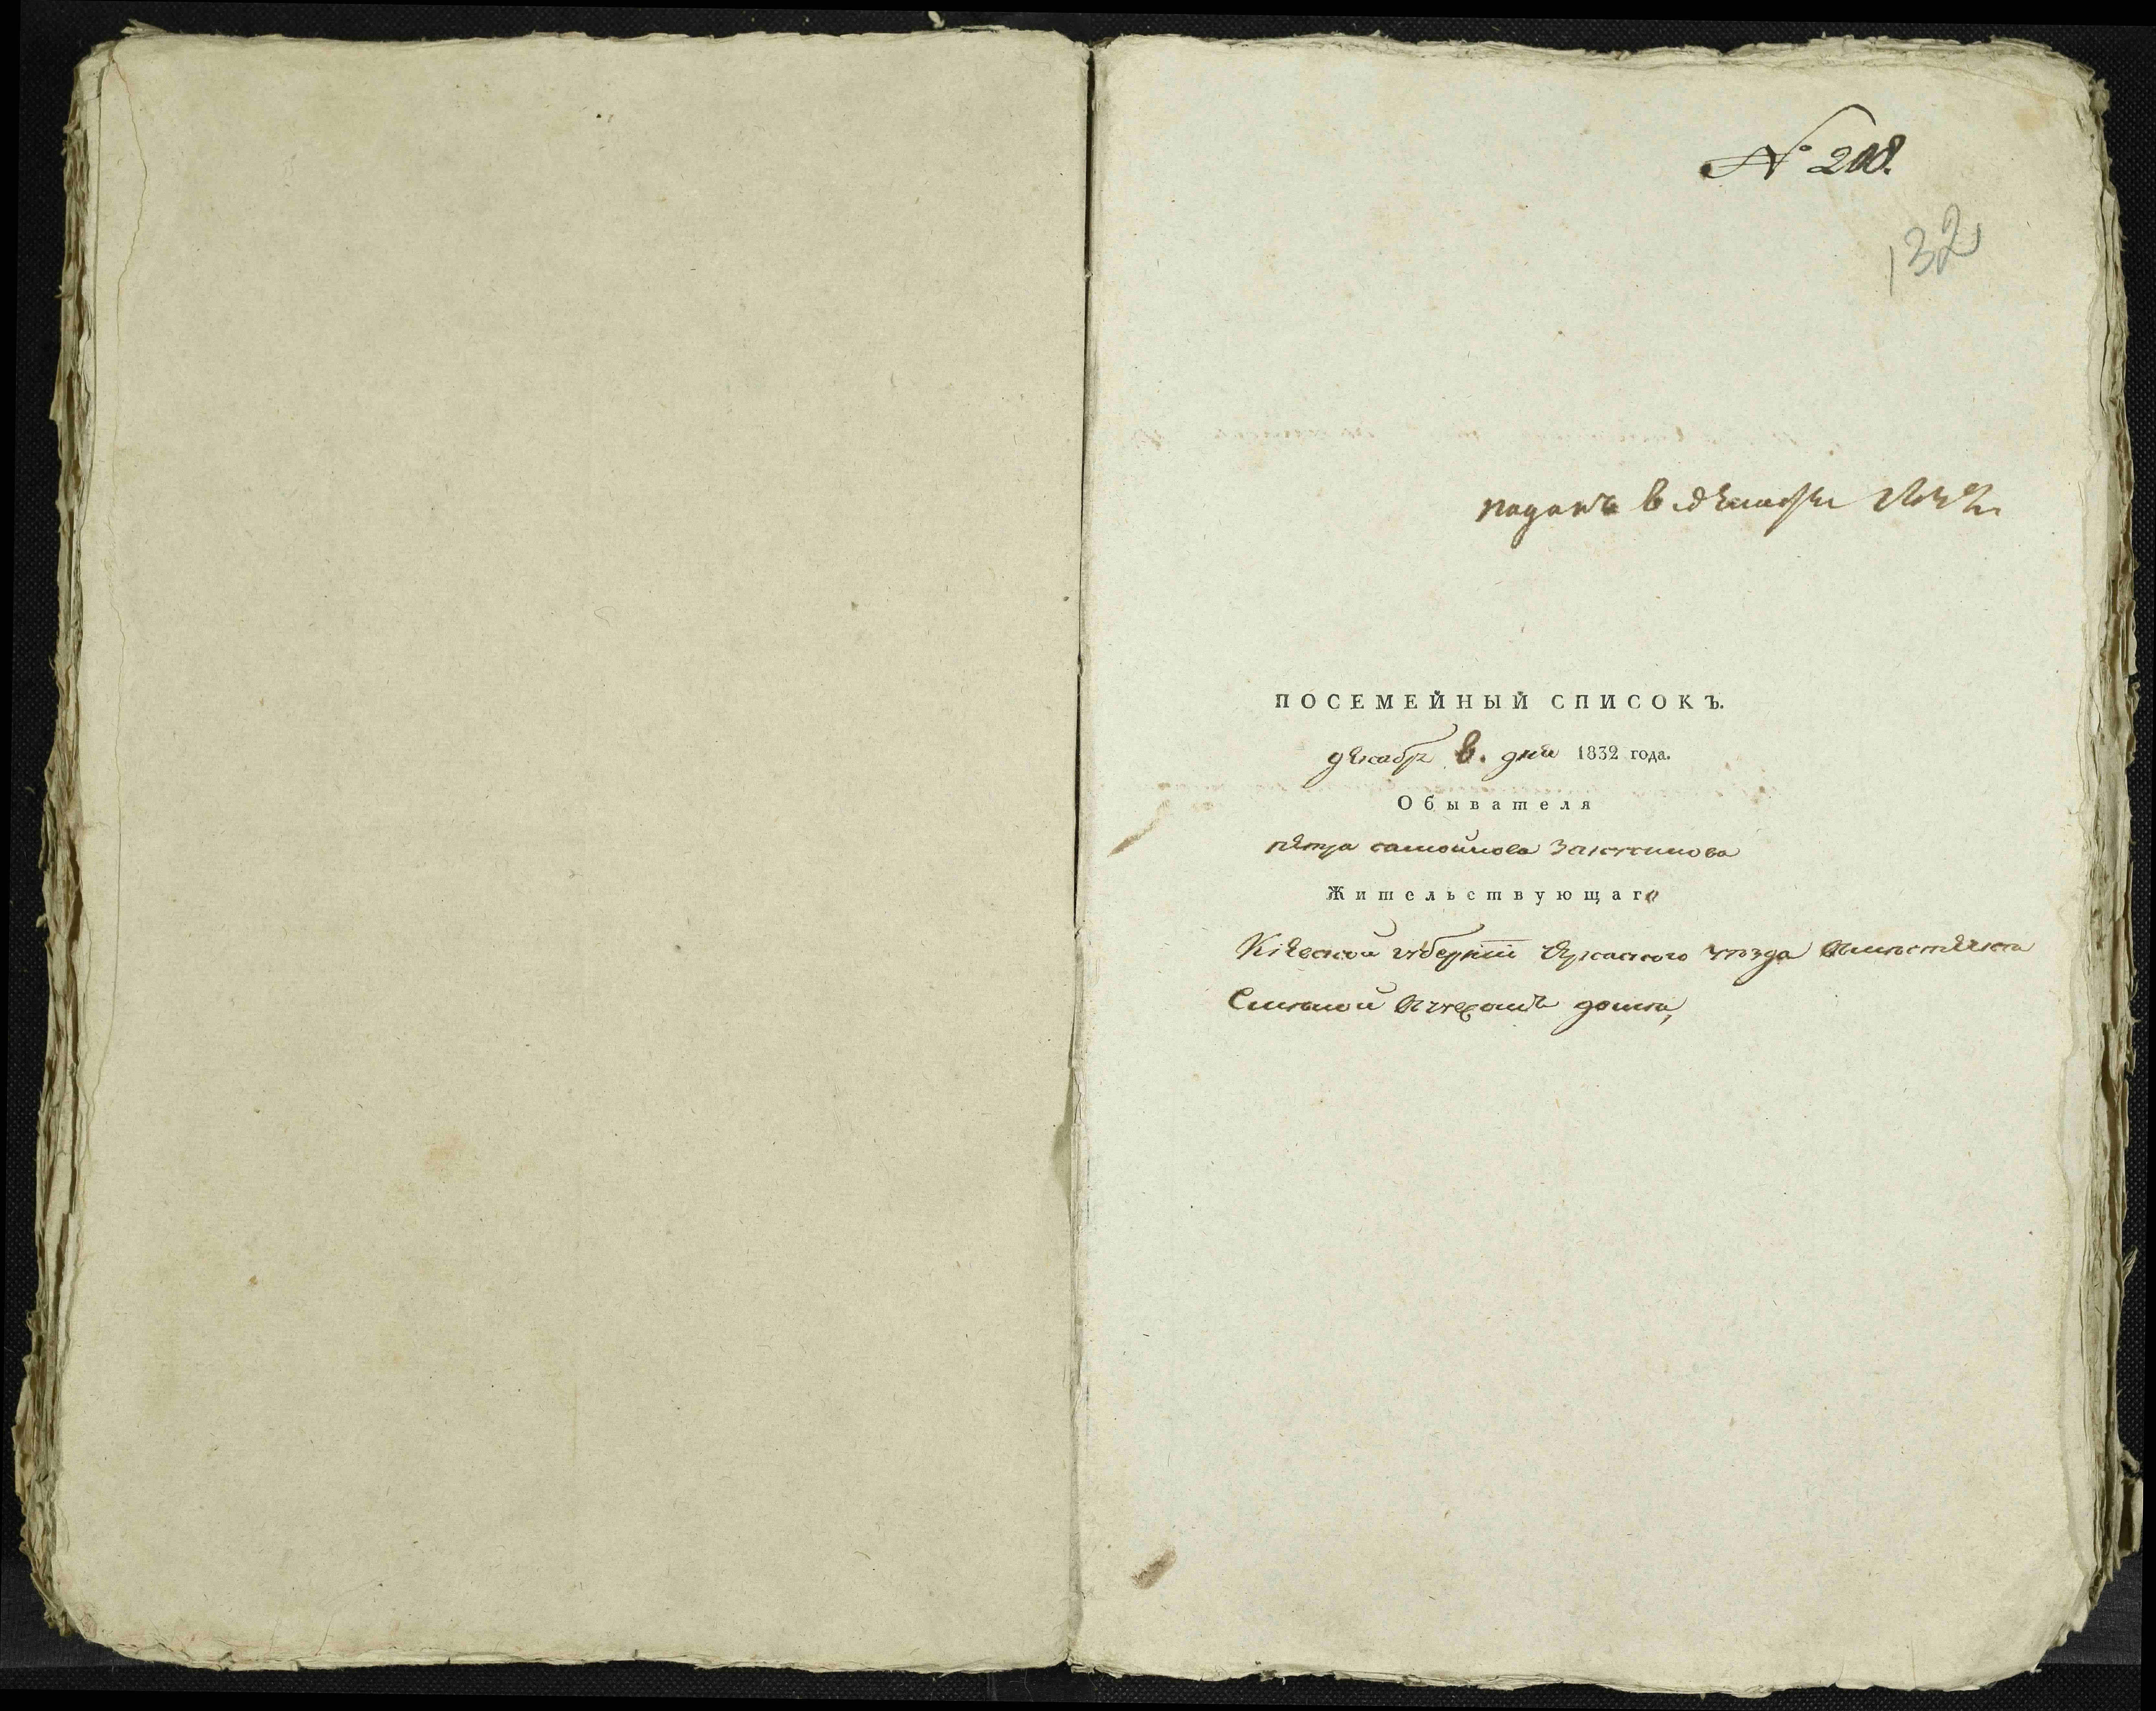 № 208.
132
поданъ в декабр
ПОСЕМЕЙНЫЙ СПИСОКЪ.
декабр 8. дня 1832 года.
Обывателя
петра самойлова
Жительствующаго
Кіевской губерніи Черкаского уезда вместечке
Смелой в чужомъ доме,